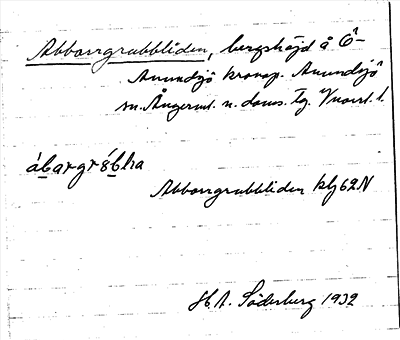 Abborrgrubbliden, bergshöjd å Ö-
Anundsjö kronop. Anundsjö
sn. Ångerml. n. doms. tg. V
ábargróbḷa
Abborrgrubbliden blj 62 N
H. A. Söderberg 1932